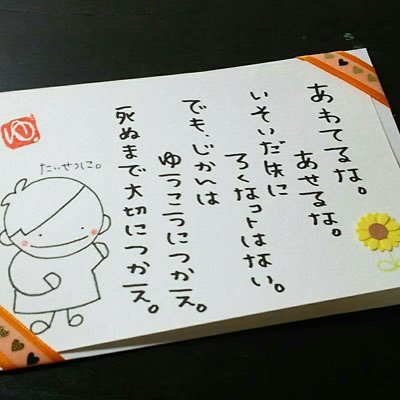 あわてるな。
あせるな。
いそいだ に
ろくなコトはない。
でも、じかんは
ゆうこうにつかえ。
死ぬまで大切につかえ。
たいせつに。